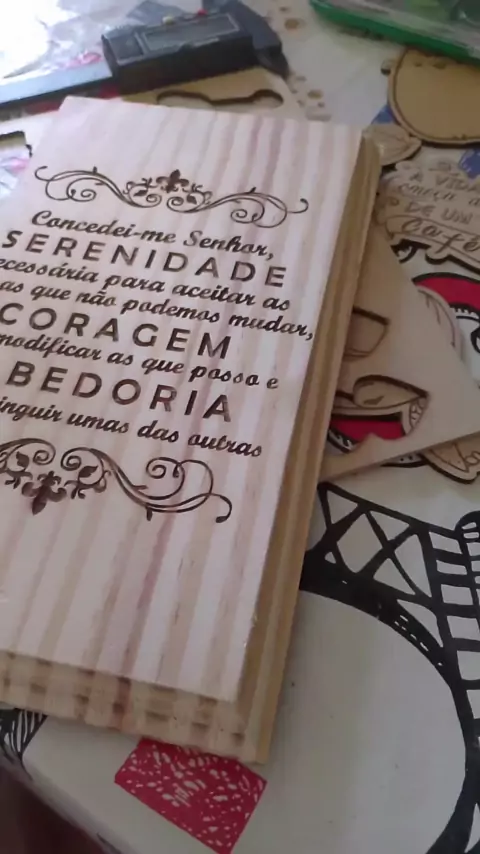 Concedei-me Senhor,
SERENIDADE
ecessária para aceitar as
as que não podemos mudar,
CORAGEM
modificar as que posso e
BEDORIA
inguir umas das outras
A VIDA
começa a
DE UM
Café